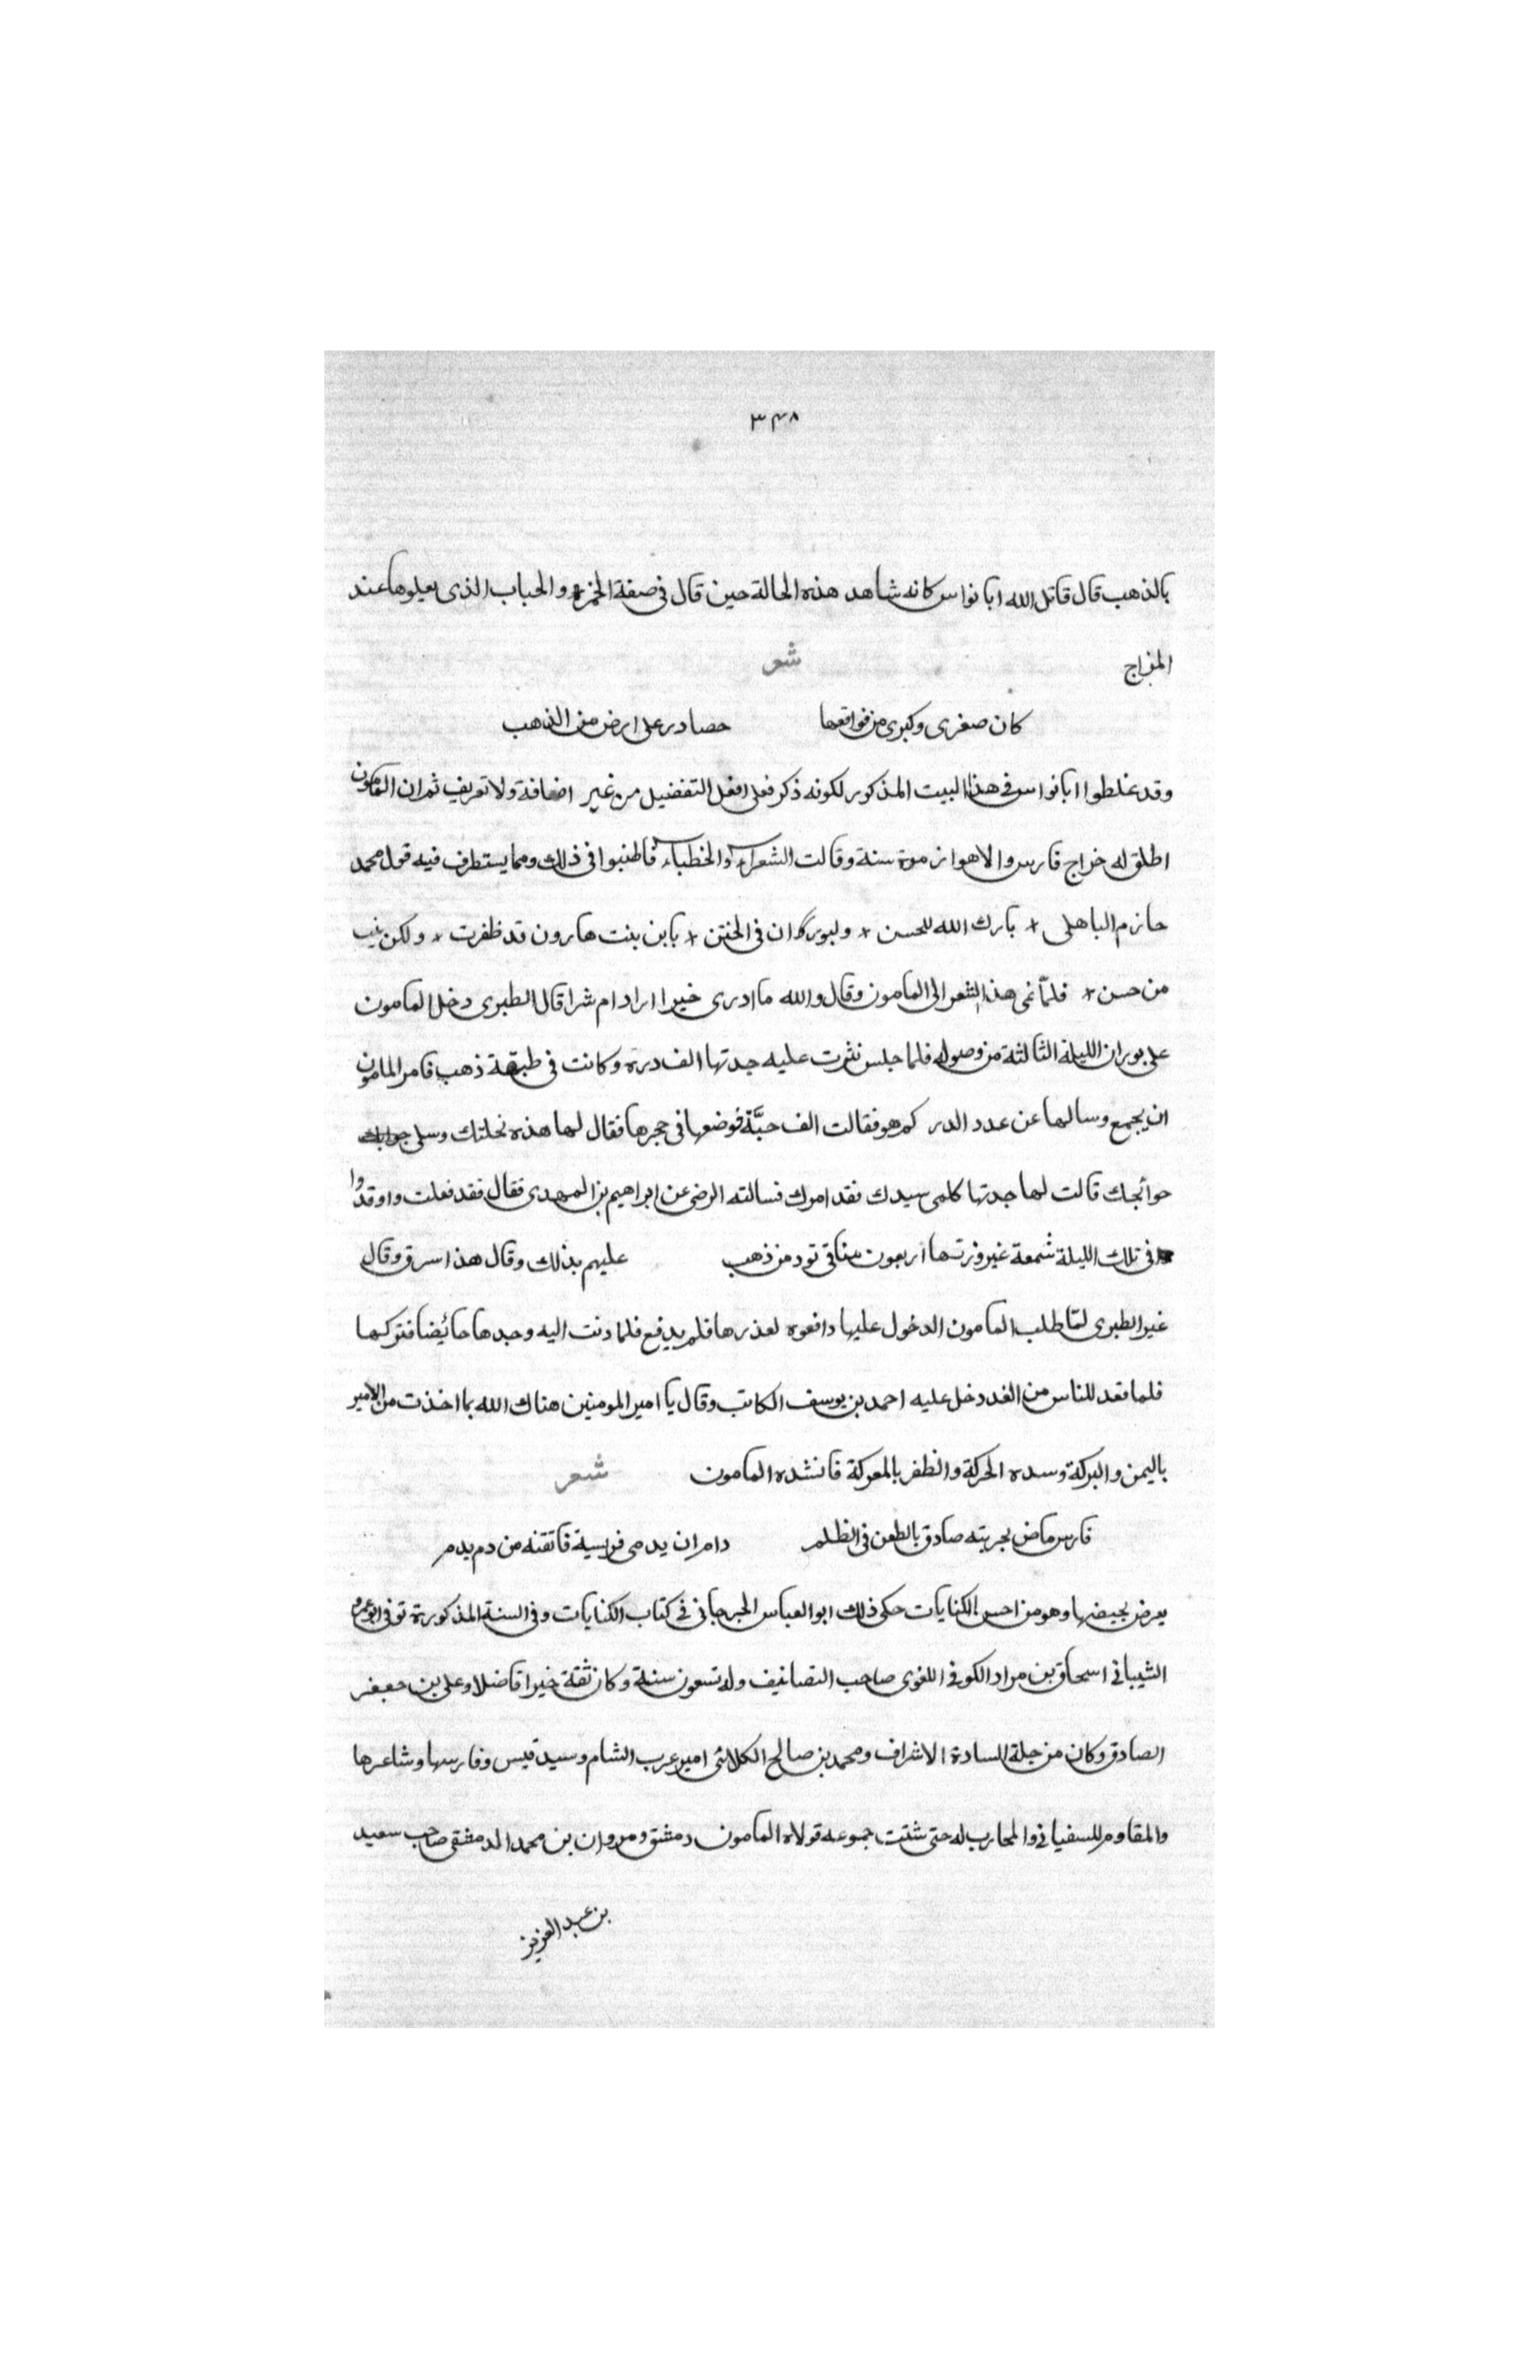 ٣٤٨
بالذهب قال قاتل الله ابا نواس كانه شاهد هذه الحالة حين قال فى صفة الخمرة والحباب الذى يعلوها عند
المزاج شعر
كان صغرى وكبرى من فواقعها حصا در على ارض من الذهب
وقد غلطوا ابا نواس فى هذا البيت المذكور لكونه ذكر فعلى افعل التفضيل من غير اضافة ولا تعريف ثم ان المامون
اطلق له خراج فارس والاهواز موة سنة وقالت الشعراء والخطباء فاطنبوا فى ذلك ومما يستطرف فيه قول محمد
حازم الباهلى بارك الله للحسن ولبوران فى الختن يا بن بنت هارون قد ظفرت ولكن ببنت
من حسن فلمّا نمى هذا الشعر الى المامون وقال والله ما ادرى خيرا اراد ام شرا قال الطبرى دخل المامون
على بوران الليلة الثالثة من وصوله فلما جلس نثرت عليه جدتها الف درة وكانت فى طبقة ذهب فامر المامون
ان يجمع وسالها عن عدد الدر كم هو فقالت الف حبّة فوضعها فى حجرها فقال لها هذه نحلتك وسلى
حوائجك قالت لها جدتها كلمى سيدك فقد امرك فسالته الرضى عن ابراهيم بن المهدى فقال فقد فعلت واوقدوا
فى تلك الليلة شمعة غير وزنها اربعون منا فى تود من ذهب عليهم بذلك وقال هذا اسرق وقال
غير الطبرى لمّا طلب المامون الدخول عليها دافعوه لعذرها فلم يدفع فلما دنت اليه وجدها حائضا فتركها
فلما قعد للناس من الغد دخل عليه احمد بن يوسف الكاتب وقال يا امير المومنين هناك الله بما اخذت من الامير
باليمن والبركة وسده الحركة والظفر بالمعركة فانشده المامون شعر
فارس ماض بحربته صادق بالطعن فى الظلم دام ان يدمى فريسية فاتقنه من دم بدم
يعرض بحيضها وهو من احسن الكنايات حكى ذلك ابو العباس الجرجانى فى كتاب الكنايات وفى السنة المذكورة توفى ابو عمرو
الشيبانى اسحاق بن مراد الكوفى اللغوى صاحب التصانيف وله تسعون سنة وكان ثقة خيرا فاضلا وعلى بن جعفر
الصادق وكان من جلة السادة الاشراف ومحمد بن صالح الكلائى امير عرب الشام وسيد قيس وفارسها وشاعرها
والمقاوم للسفيانى والمحارب له حتى شتت جموعه فولاه المامون دمشق ومروان بن محمد الدمشقى صاحب سعيد
بن عبد العزيز